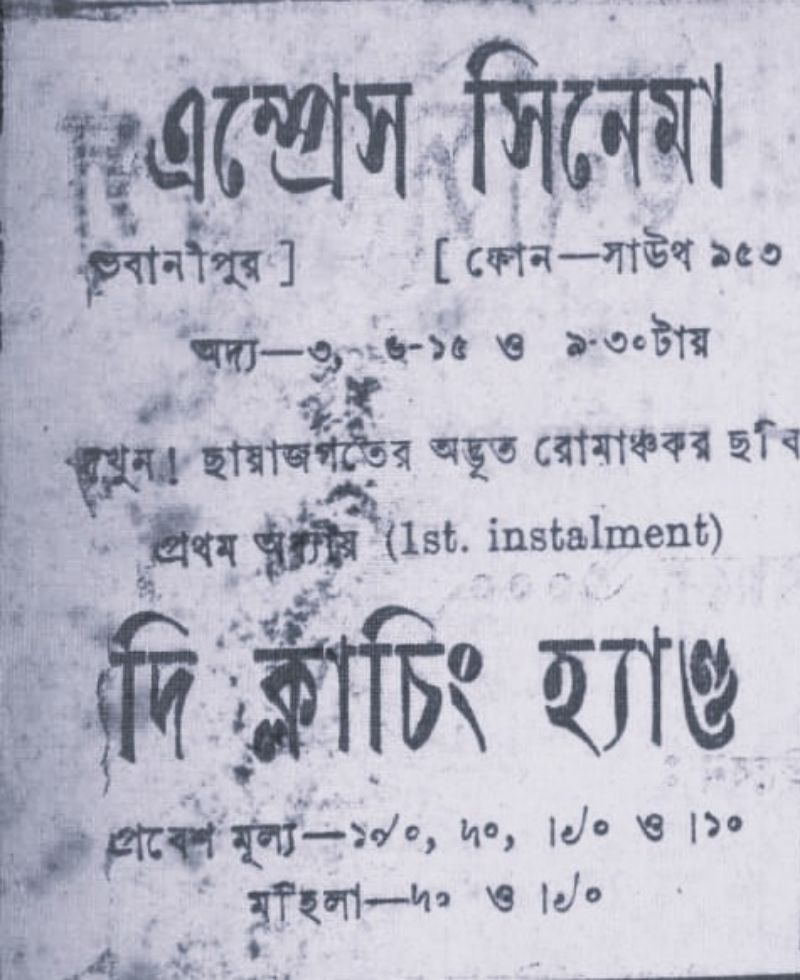 এম্প্রেস সিনেমা
ভবানীপুর ] [ ফোন—সাউথ ৯৫৩
অদ্য—৩, ৬-১৫ ও ৯-৩০টায়
দেখুন! ছায়াজগতের অদ্ভূত রোমাঞ্চকর ছবি
প্রথম অধ্যায় (1st. instalment)
দি ক্লাচিং হ্যাণ্ড
প্রবেশ মূল্য—১৵০, ৸০, ।৵০ ও ।১০
মহিলা—৸০ ও ।৵০